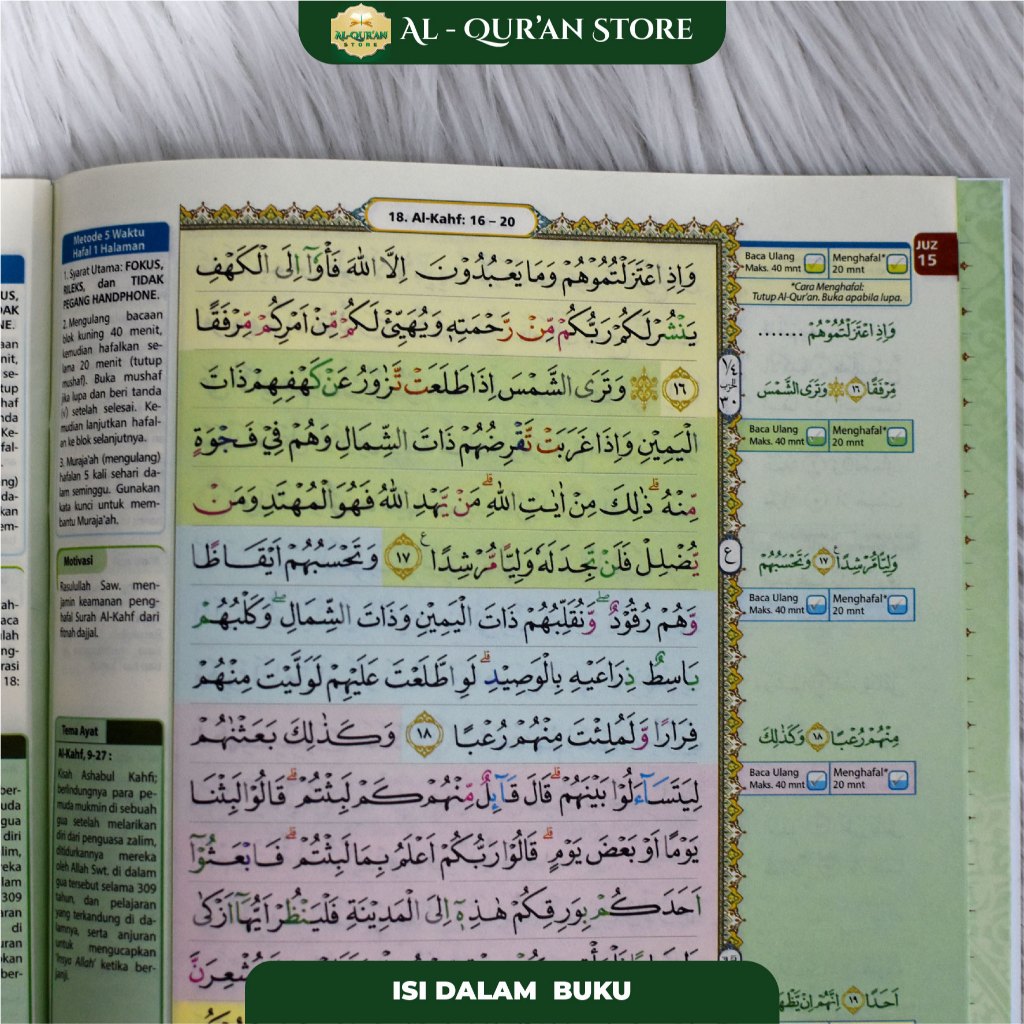 AL-QUR'AN
STORE
AL - QUR'AN STORE
18. Al-Kahf: 16 – 20
JUZ
15
Metode 5 Waktu
Hafal 1 Halaman
1. Syarat Utama: FOKUS,
RILEKS, dan TIDAK
PEGANG HANDPHONE.
2. Mengulang bacaan
blok kuning 40 menit,
kemudian hafalkan se-
lama 20 menit (tutup
mushaf). Buka mushaf
jika lupa dan beri tanda
(√) setelah selesai. Ke-
mudian lanjutkan hafal-
an ke blok selanjutnya.
3. Muraja'ah (mengulang)
hafalan 5 kali sehari da-
lam seminggu. Gunakan
kata kunci untuk mem-
bantu Muraja'ah.
Motivasi
Rasulullah Saw. men-
jamin keamanan peng-
hafal Surah Al-Kahf dari
fitnah dajjal.
Tema Ayat
Al-Kahf, 9-27 :
Kisah Ashabul Kahfi;
berlindungnya para pe-
muda mukmin di sebuah
gua setelah melarikan
diri dari penguasa zalim,
ditidurkannya mereka
oleh Allah Swt. di dalam
gua tersebut selama 309
tahun, dan pelajaran
yang terkandung di da-
lamnya, serta anjuran
untuk mengucapkan
'Insya Allah' ketika ber-
janji.
وَاِذِ اعْتَزَلْتُمُوْهُمْ وَمَا يَعْبُدُوْنَ اِلَّا اللّٰهَ فَأْوٗٓا اِلَى الْكَهْفِ
يَنْشُرْ لَكُمْ رَبُّكُمْ مِّنْ رَّحْمَتِهٖ وَيُهَيِّئْ لَكُمْ مِّنْ اَمْرِكُمْ مِّرْفَقًا
١٦ ۞ وَتَرَى الشَّمْسَ اِذَا طَلَعَتْ تَّزٰوَرُ عَنْ كَهْفِهِمْ ذَاتَ
الْيَمِيْنِ وَاِذَا غَرَبَتْ تَّقْرِضُهُمْ ذَاتَ الشِّمَالِ وَهُمْ فِيْ فَجْوَةٍ
مِّنْهُۗ ذٰلِكَ مِنْ اٰيٰتِ اللّٰهِۗ مَنْ يَّهْدِ اللّٰهُ فَهُوَ الْمُهْتَدِ وَمَنْ
يُّضْلِلْ فَلَنْ تَجِدَ لَهٗ وَلِيًّا مُّرْشِدًا ١٧ وَتَحْسَبُهُمْ اَيْقَاظًا
وَّهُمْ رُقُوْدٌ ۖ وَّنُقَلِّبُهُمْ ذَاتَ الْيَمِيْنِ وَذَاتَ الشِّمَالِ ۖ وَكَلْبُهُمْ
بَاسِطٌ ذِرَاعَيْهِ بِالْوَصِيْدِۗ لَوِ اطَّلَعْتَ عَلَيْهِمْ لَوَلَّيْتَ مِنْهُمْ
فِرَارًا وَّلَمُلِئْتَ مِنْهُمْ رُعْبًا ١٨ وَكَذٰلِكَ بَعَثْنٰهُمْ
لِيَتَسَاۤءَلُوْا بَيْنَهُمْۗ قَالَ قَاۤىِٕلٌ مِّنْهُمْ كَمْ لَبِثْتُمْۗ قَالُوْا لَبِثْنَا
يَوْمًا اَوْ بَعْضَ يَوْمٍۗ قَالُوْا رَبُّكُمْ اَعْلَمُ بِمَا لَبِثْتُمْۗ فَابْعَثُوْٓا
اَحَدَكُمْ بِوَرِقِكُمْ هٰذِهٖٓ اِلَى الْمَدِيْنَةِ فَلْيَنْظُرْ اَيُّهَآ اَزْكٰى
Baca Ulang
Maks. 40 mnt
Menghafal*
20 mnt
*Cara Menghafal:
Tutup Al-Qur'an. Buka apabila lupa.
وَاِذِ اعْتَزَلْتُمُوْهُمْ .......
١/٤
الحزب
٣٠
مِّرْفَقًا ١٦ ۞ وَتَرَى الشَّمْسَ
Baca Ulang
Maks. 40 mnt
Menghafal*
20 mnt
ع
وَلِيًّا مُّرْشِدًا ١٧ وَتَحْسَبُهُمْ
Baca Ulang
Maks. 40 mnt
Menghafal*
20 mnt
مِنْهُمْ رُعْبًا ١٨ وَكَذٰلِكَ
Baca Ulang
Maks. 40 mnt
Menghafal*
20 mnt
اَحَدًا ١٩ اِنَّهُمْ اِنْ
ISI DALAM BUKU